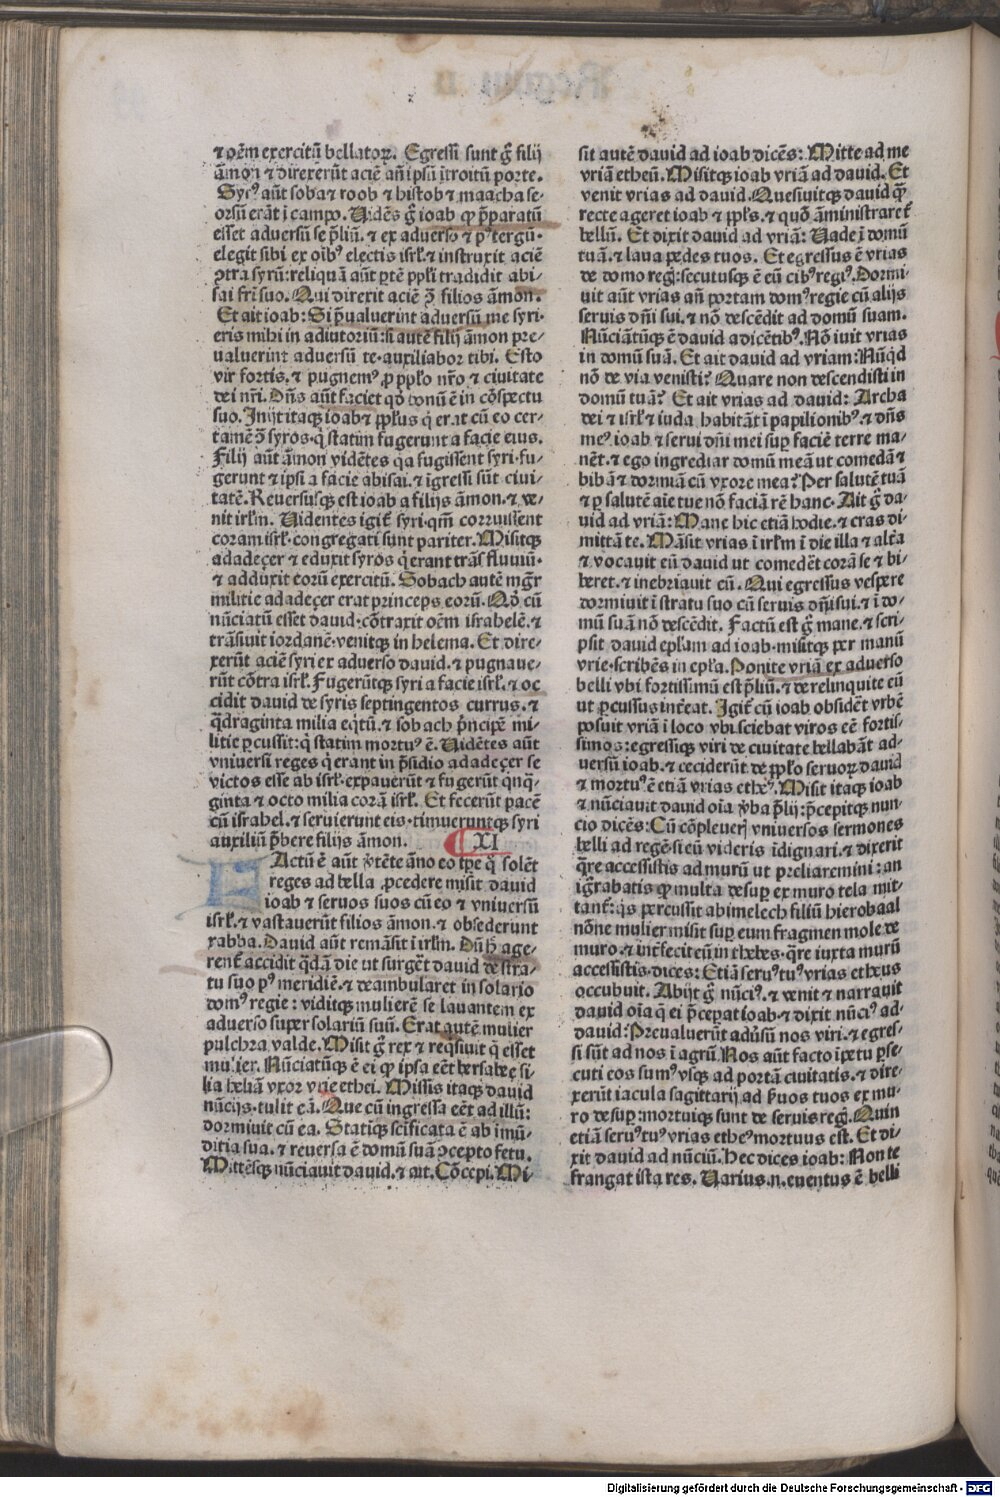 ⁊ oẽm exercitũ bellatoꝝ. Egressi sunt gͦ filij
ãmon ⁊ direxerũt aciẽ añ ipsũ ĩtroitũ porte.
Syrꝰ aũt soba ⁊ roob ⁊ histob ⁊ maacha se-
orsũ erãt ĩ campo. Uidẽs gͦ ioab ꝙ p̃paratũ
esset aduersũ se p̃liũ. ⁊ ex aduerso ⁊ pꝰ tergũ·
elegit sibi ex oĩbꝰ electis isrl̃. ⁊ instruxit aciẽ
ↄtra syrũ: reliquã aũt ꝑtẽ ppl̃i tradidit abi-
sai fr̃i suo. Qui direxit aciẽ ↄ̃ filios ãmon.
Et ait ioab: Si p̃ualuerint aduersũ me syri·
eris mihi in adiutoriũ: si autẽ filij ãmon pre-
ualuerint aduersũ te· auxiliabor tibi. Esto
vir fortis. ⁊ pugnemꝰ ꝓ ppl̃o nr̃o ⁊ ciuitate
dei nr̃i. Dñs aũt faciet qď bonũ ẽ in cõspectu
suo. Inijt itaqꝫ ioab ⁊ ppl̃us q̇ erat cũ eo cer-
tamẽ ↄ̃ syros· q̇ statim fugerunt a facie eius.
Filij aũt ãmon vidẽtes qa fugissent syri· fu-
gerunt ⁊ ipsi a facie abisai. ⁊ ĩgressi sũt ciui-
tatẽ. Reuersusqꝫ est ioab a filijs ãmon. ⁊ ve-
nit irl̃m. Uidentes igit̃ syri· qm̃ corruissent
coram isrl̃· congregati sunt pariter. Misitqꝫ
adadeçer ⁊ eduxit syros q̇ erant trãs fluuiũ·
⁊ adduxit eorũ exercitũ. Sobach autẽ mg̃r
militie adadeçer erat princeps eorũ. Qď cũ
nũciatũ esset dauid· cõtraxit oẽm israhelẽ. ⁊
trãsiuit iordanẽ· venitqꝫ in helema. Et dire-
xerũt aciẽ syri ex aduerso dauid. ⁊ pugnaue-
rũt cõtra isrl̃. Fugerũtqꝫ syri a facie isrl̃. ⁊ oc
cidit dauid de syris septingentos currus. ⁊
q̃draginta milia eq̇tũ. ⁊ sobach p̃ncipẽ mi-
litie ꝑcussit: q̇ statim mortuꝰ ẽ. Uidẽtes aũt
vniuersi reges q̇ erant in p̃sidio adadeçer se
victos esse ab isrl̃· expauerũt ⁊ fugerũt q̇nq̃-
ginta ⁊ octo milia corã isrl̃. Et fecerũt pacẽ
cũ israhel. ⁊ seruierunt eis· timueruntqꝫ syri
auxiliũ p̃bere filijs ãmon. XI
FActũ ẽ aũt v̓tẽte ãno eo tꝑe q̇ solẽt
reges ad bella ꝓcedere· misit dauid
ioab ⁊ seruos suos cũ eo ⁊ vniuersũ
isrl̃. ⁊ vastauerũt filios ãmon. ⁊ obsederunt
rabba. Dauid aũt remãsit ĩ irl̃m. Dũ h̓ age-
rent̃ accidit q̃dã die ut surgẽt dauid de stra-
tu suo pꝰ meridiẽ. ⁊ deambularet in solario
domꝰ regie: viditqꝫ mulierẽ se lauantem ex
aduerso super solariũ suũ. Erat autẽ mulier
pulchra valde. Misit gͦ rex ⁊ req̇siuit q̃ esset
mulier. Nũciatũqꝫ ẽ ei ꝙ ipsa eẽt bersabeȩ fi-
lia heliã vxor vrie ethei. Missis itaqꝫ dauid
nũcijs· tulit eã. Que cũ ingressa eẽt ad illũ:
dormiuit cũ ea. Statiqꝫ scificata ẽ ab imũ-
ditia sua. ⁊ reuersa ẽ domũ suã ↄcepto fetu.
Mittẽsqꝫ nũciauit dauid. ⁊ ait. Cõcepi. Mi-
sit autẽ dauid ad ioab dicẽs: Mitte ad me
vriam etheũ. Misitqꝫ ioab vriã ad dauid. Et
venit vrias ad dauid. Quesiuitqꝫ dauid q̃
recte ageret ioab ⁊ ppl̃s. ⁊ quõ ãministraret̃
bellũ. Et dixit dauid ad vriã: Uade ĩ domũ
tuã. ⁊ laua pedes tuos. Et egressus ẽ vrias
de domo reg̃: secutusqꝫ ẽ eũ cibꝰ regiꝰ. Dormi-
uit aũt vrias añ portam domꝰ regie cũ alijs
seruis dñi sui. ⁊ nõ descẽdit ad domũ suam.
Nũciãtũqꝫ ẽ dauid a dicẽtibꝰ. Nõ iuit vrias
in domũ suã. Et ait dauid ad vriam: Nũq̇d
nõ de via venisti? Quare non descendisti in
domũ tuã? Et ait vrias ad dauid: Archa
dei ⁊ isrl̃ ⁊ iuda habitãt ĩ papilionibꝰ. ⁊ dñs
meꝰ ioab ⁊ serui dñi mei suꝑ faciẽ terre ma-
nẽt. ⁊ ego ingrediar domũ meã ut comedã ⁊
bibã ⁊ dormiã cũ vxore mea? Per salutẽ tuã
⁊ ꝑ salutẽ aĩe tue nõ faciã rẽ hanc. Ait gͦ da-
uid ad vriã: Mane hic etiã hodie. ⁊ cras di-
mittã te. Mãsit vrias ĩ irl̃m ĩ die illa ⁊ alt̃a
⁊ vocauit eũ dauid ut comedẽt corã se ⁊ bi-
beret. ⁊ inebriauit eũ. Qui egressus vespere
dormiuit ĩ stratu suo cũ seruis dñi sui. ⁊ ĩ do-
mũ suã nõ descẽdit. Factũ est gͦ mane. ⁊ scri-
psit dauid epl̃am ad ioab· misitqꝫ per manũ
vrie· scribẽs in epl̃a. Ponite vriã ex aduerso
belli vbi fortissimũ est p̃liũ. ⁊ derelinquite eũ
ut ꝑcussus int̃eat. Igit̃ cũ ioab obsidẽt vrbẽ
posuit vriã ĩ loco vbi sciebat viros eẽ fortis-
simos: egressiqꝫ viri de ciuitate bellabãt ad-
uersũ ioab. ⁊ ceciderũt de ppl̃o seruoꝝ dauid
⁊ mortuꝰ ẽ etiã vrias etheꝰ. Misit itaqꝫ ioab
⁊ nũciauit dauid oĩa v̓ba p̃lij: p̃cepitqꝫ nun-
cio dicẽs: Cũ cõpleueris vniuersos sermones
belli ad regẽ: si eũ videris ĩdignari. ⁊ dixerit
q̃re accessistis ad murũ ut preliaremini: an
ig̃rabatis ꝙ multa desuꝑ ex muro tela mit-
tant̃: q̇s percussit abimelech filiũ hierobaal
nõne mulier misit suꝑ eum fragmen mole de
muro. ⁊ int̃fecit eũ in thebes· q̃re iuxta murũ
accessistis· dices: Etiã seruꝰ tuꝰ vrias etheus
occubuit. Abijt gͦ nũciꝰ. ⁊ venit ⁊ narrauit
dauid oĩa q̃ ei p̃ceperat ioab· ⁊ dixit nũciꝰ ad
dauid: Preualuerũt adũsũ nos viri. ⁊ egres-
si sũt ad nos ĩ agrũ. Nos aũt facto ĩpetu ꝑse-
cuti eos sumꝰ vsqꝫ ad portã ciuitatis. ⁊ dire-
xerũt iacula sagittarij ad s̃uos tuos ex mu-
ro desuꝑ: mortuiqꝫ sunt de seruis reg̃. Quin
etiã seruꝰ tuꝰ vrias etheꝰ mortuus est. Et di-
xit dauid ad nũciũ. Hec dices ioab: Non te
frangat ista res. Uarius .n. euentus ẽ belli
Digitalisierung gefördert durch die Deutsche Forschungsgemeinschaft - DFG